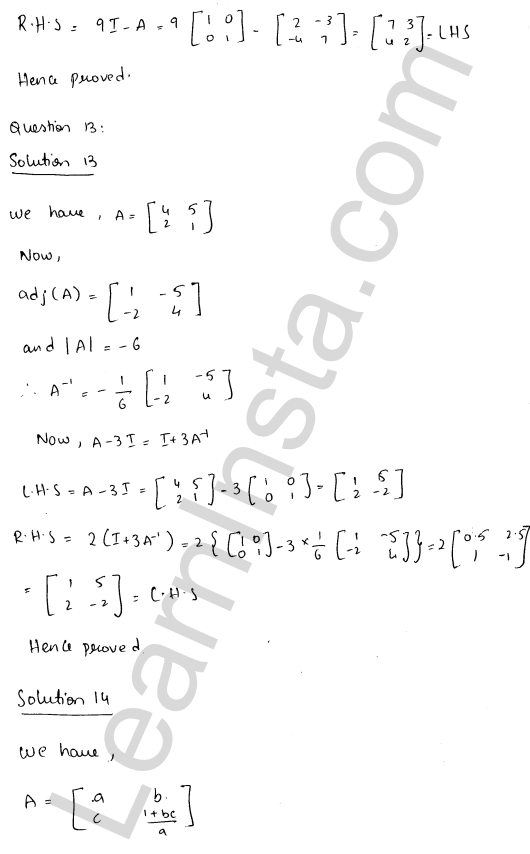 R.H.S = 9I - A = 9 [1 0; 0 1] - [2 -3; -4 7] = [7 3; 4 2] = LHS
Hence proved.
Question 13:
Solution 13
we have, A = [4 5; 2 1]
Now,
adj(A) = [1 -5; -2 4]
and |A| = -6
∴ A⁻¹ = -1/6 [1 -5; -2 4]
Now, A-3I = I+3A⁻¹
L.H.S = A-3I = [4 5; 2 1] - 3 [1 0; 0 1] = [1 5; 2 -2]
R.H.S = 2(I+3A⁻¹) = 2{[1 0; 0 1] - 3 × 1/6 [1 -5; -2 4]} = 2 [0.5 2.5; 1 -1]
= [1 5; 2 -2] = L.H.S
Hence proved
Solution 14
we have,
A = [a b; c (1+bc)/a]
LearnInsta.com